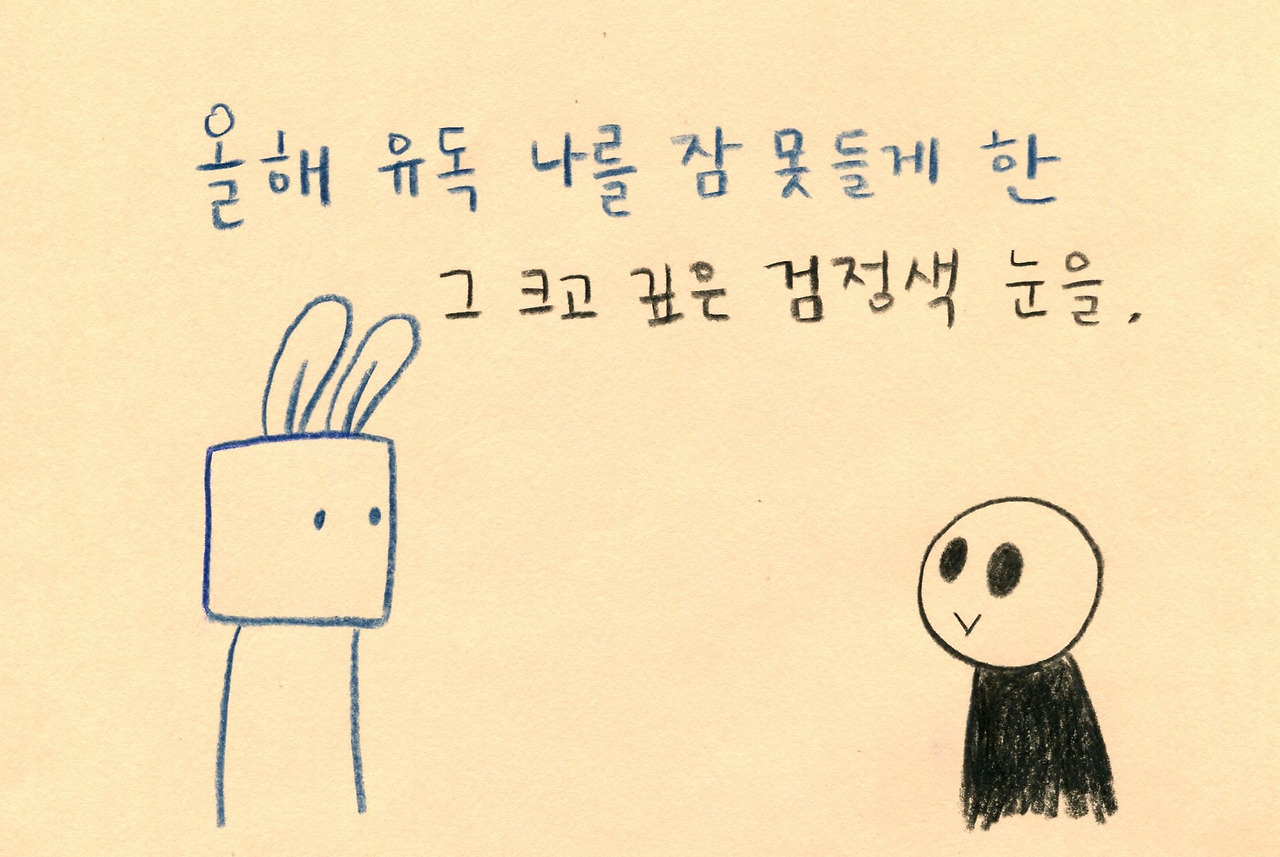 올해 유독 나를 잠 못들게 한
그 크고 깊은 검정색 눈을.